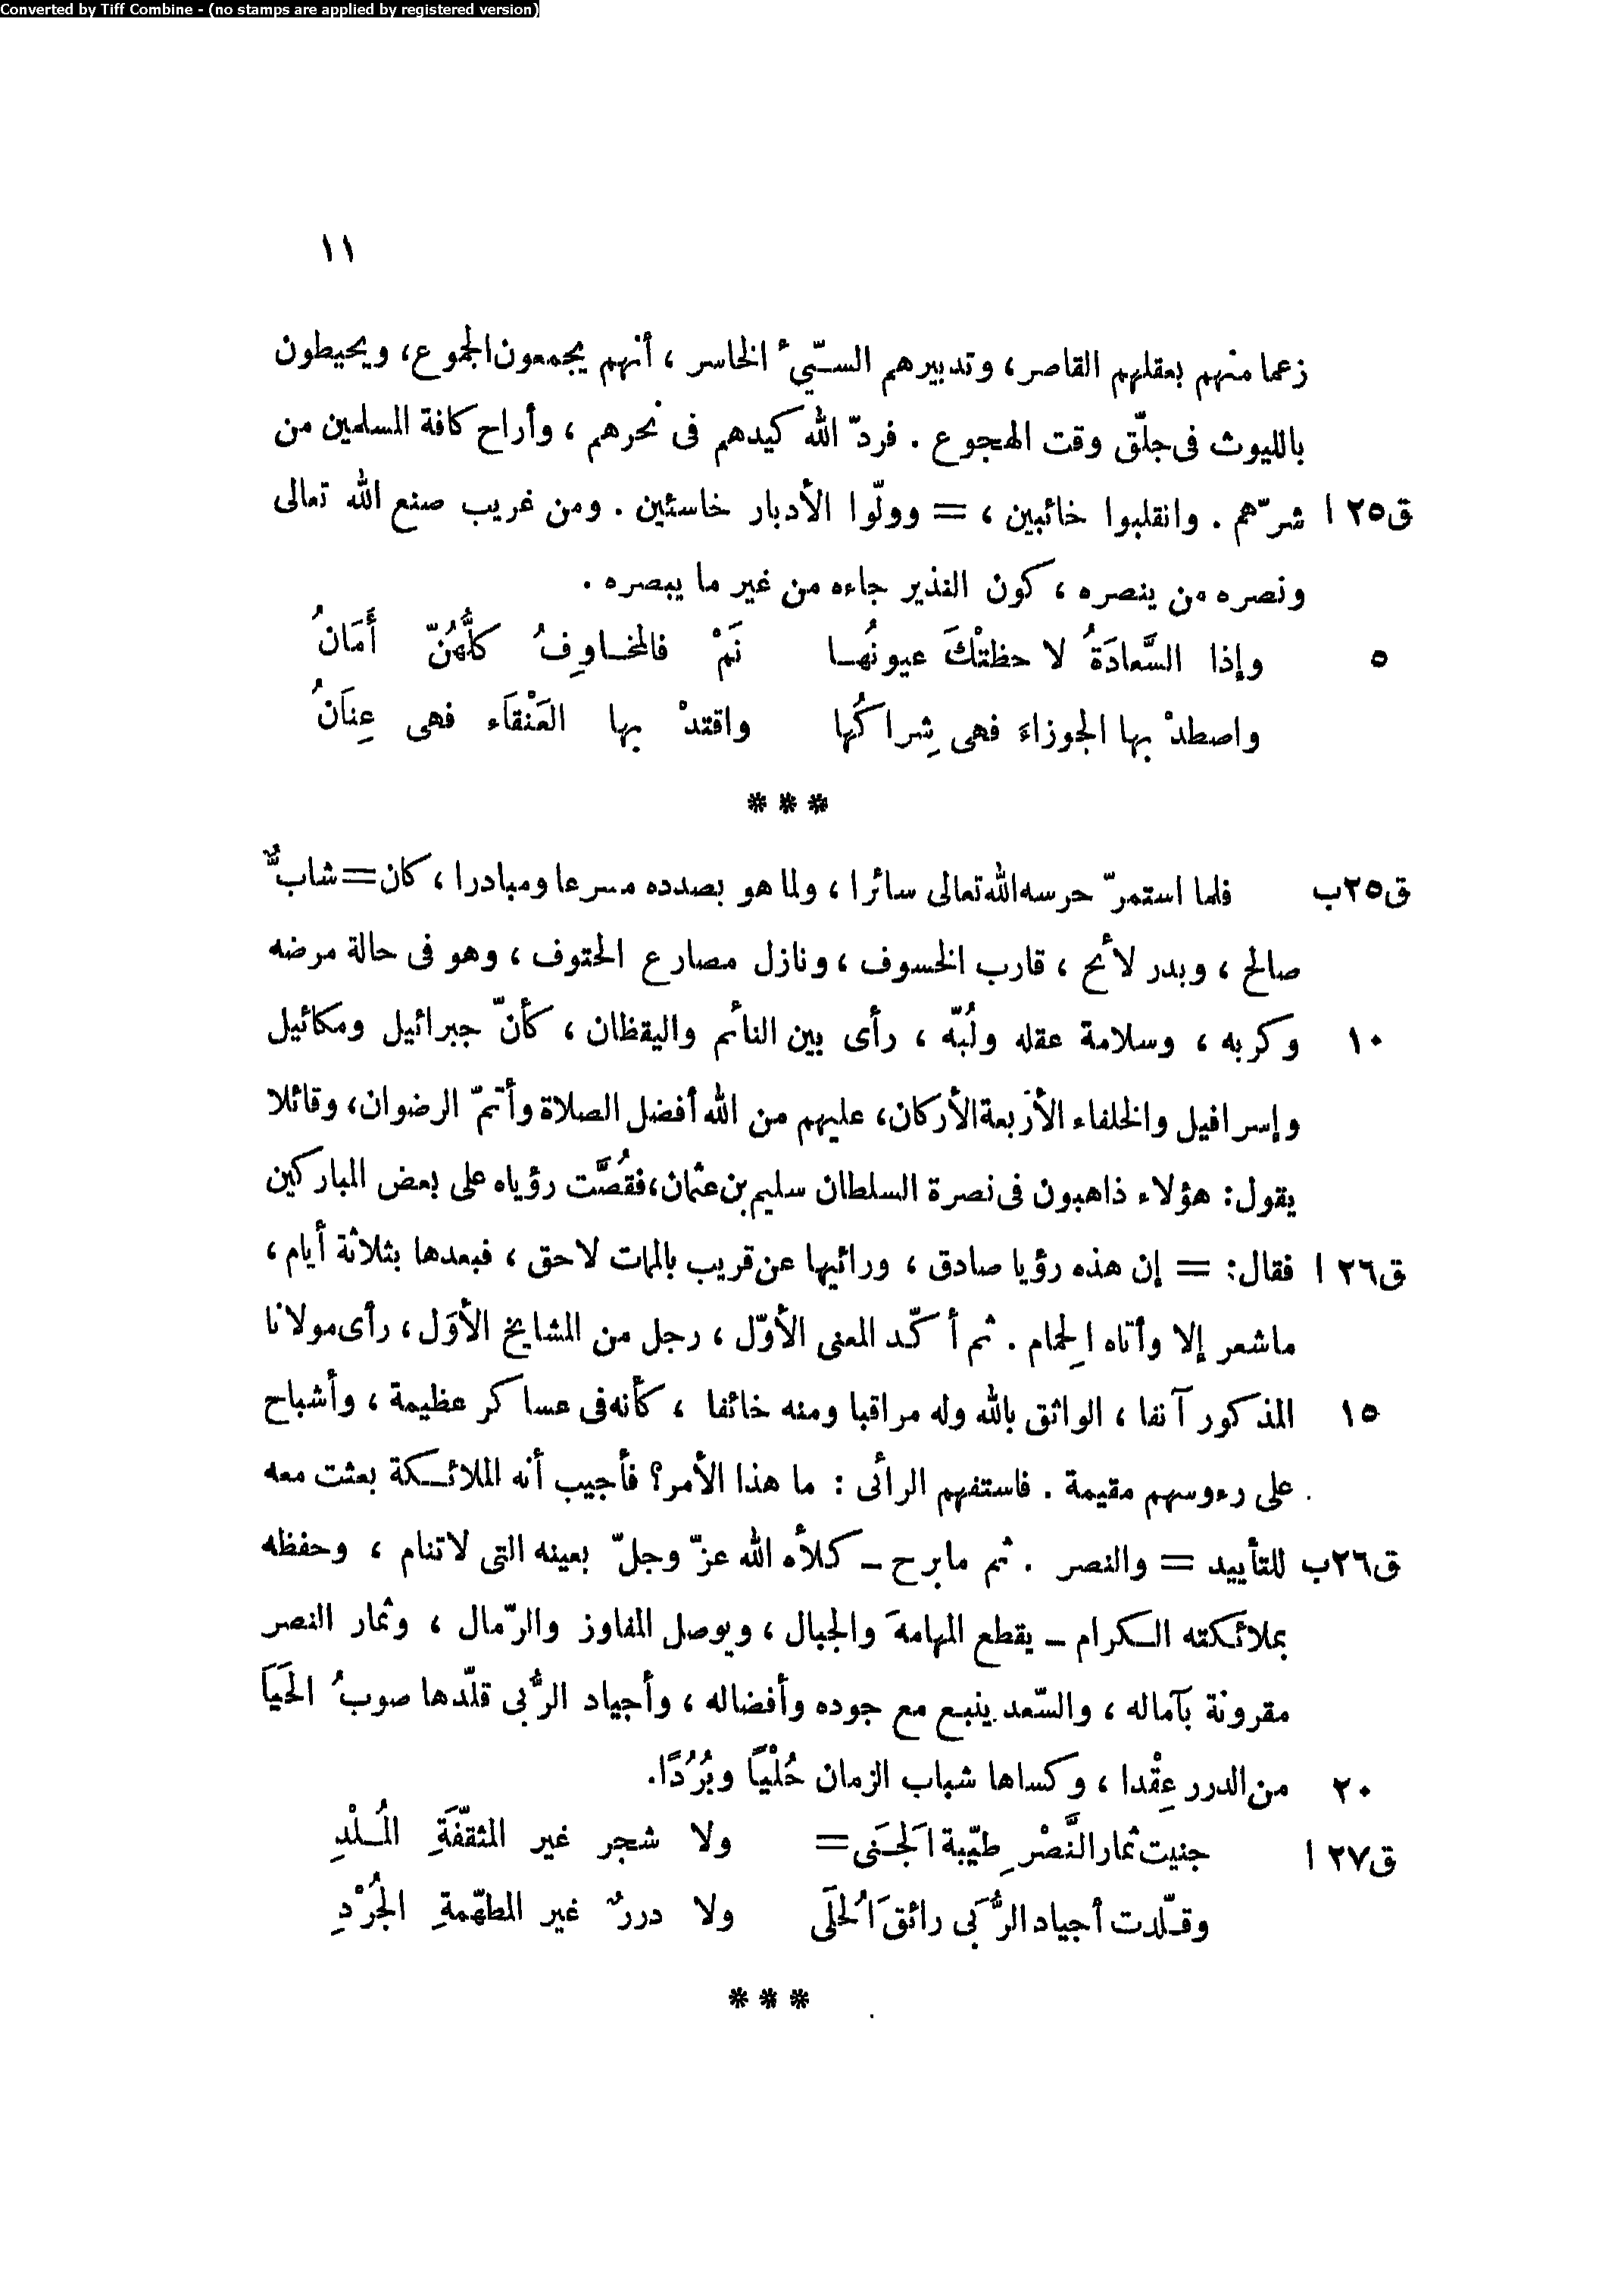 Converted by Tiff Combine - (no stamps are applied by registered version)
١١
زعما منهم بعقلهم القاصر، وتدبيرهم السيّئ الخاسر ، أنهم يجمعون الجموع، ويحيطون
بالليوث فى جلّق وقت الهجوع . فردّ الله كيدهم فى نحرهم ، وأراح كافة المسلمين من
ق٢٥ ا شرّهم . وانقلبوا خائبين ، = وولّوا الأدبار خاسئين . ومن غريب صنع الله تعالى
ونصره من ينصره ، كون النذير جاءه من غير ما يبصره .
٥ وإذا السَّعادَةُ لاحظتْكَ عيونُها نَمْ فالمخاوِفُ كلُّهُنّ أَمَانُ
واصطدْ بها الجوزاءَ فهى شِراكُها واقتدْ بها العَنْقَاء فهى عِنَانُ
***
ق٢٥ب فلما استمرّ حرسه الله تعالى سائرا ، ولما هو بصدده مسرعا ومبادرا ، كان = شابٌّ
صالح ، وبدر لائح ، قارب الخسوف ، ونازل مصارع الحتوف ، وهو فى حالة مرضه
١٠ وكربه ، وسلامة عقله ولُبّه ، رأى بين النائم واليقظان ، كأنّ جبرائيل ومكائيل
وإسرافيل والخلفاء الأربعة الأركان، عليهم من الله أفضل الصلاة وأتمّ الرضوان، وقائلا
يقول: هؤلاء ذاهبون فى نصرة السلطان سليم بن عثمان، فقُصَّت رؤياه على بعض المباركين
ق٢٦ ا فقال: = إن هذه رؤيا صادق ، ورائيها عن قريب بالمات لاحق ، فبعدها بثلاثة أيام ،
ماشعر إلا وأتاه الحِمام . ثم أكّد المعنى الأوّل ، رجل من المشايخ الأوَل ، رأى مولانا
١٥ المذكور آنفا ، الواثق بالله وله مراقبا ومنه خائفا ، كأنه فى عساكر عظيمة ، وأشباح
على رءوسهم مقيمة . فاستفهم الرائى : ما هذا الأمر؟ فأجيب أنه الملائكة بعثت معه
ق٢٦ب للتأييد = والنصر . ثم مابرح – كلأه الله عزّ وجلّ بعينه التى لاتنام ، وحفظه
بملائكته الكرام – يقطع المهامهَ والجبال ، ويوصل المفاوز والرّمال ، وثمار النصر
مقرونة بآماله ، والسّعد ينبع مع جوده وأفضاله ، وأجياد الرُّبى قلّدها صوبُ الحَيَاَ
٢٠ من الدرر عِقْدا ، وكساها شباب الزمان حُلْيًا وبُرُدًا.
ق٢٧ ا جنيت ثمار النَّصْرِ طيّبة الَجَنى = ولا شجر غير المثقّفَةِ المُلْدِ
وقلّدت أجياد الرُّبَى رائقَ الُحلَى ولا دررٌ غير المطهّمةِ الجُرْدِ
***